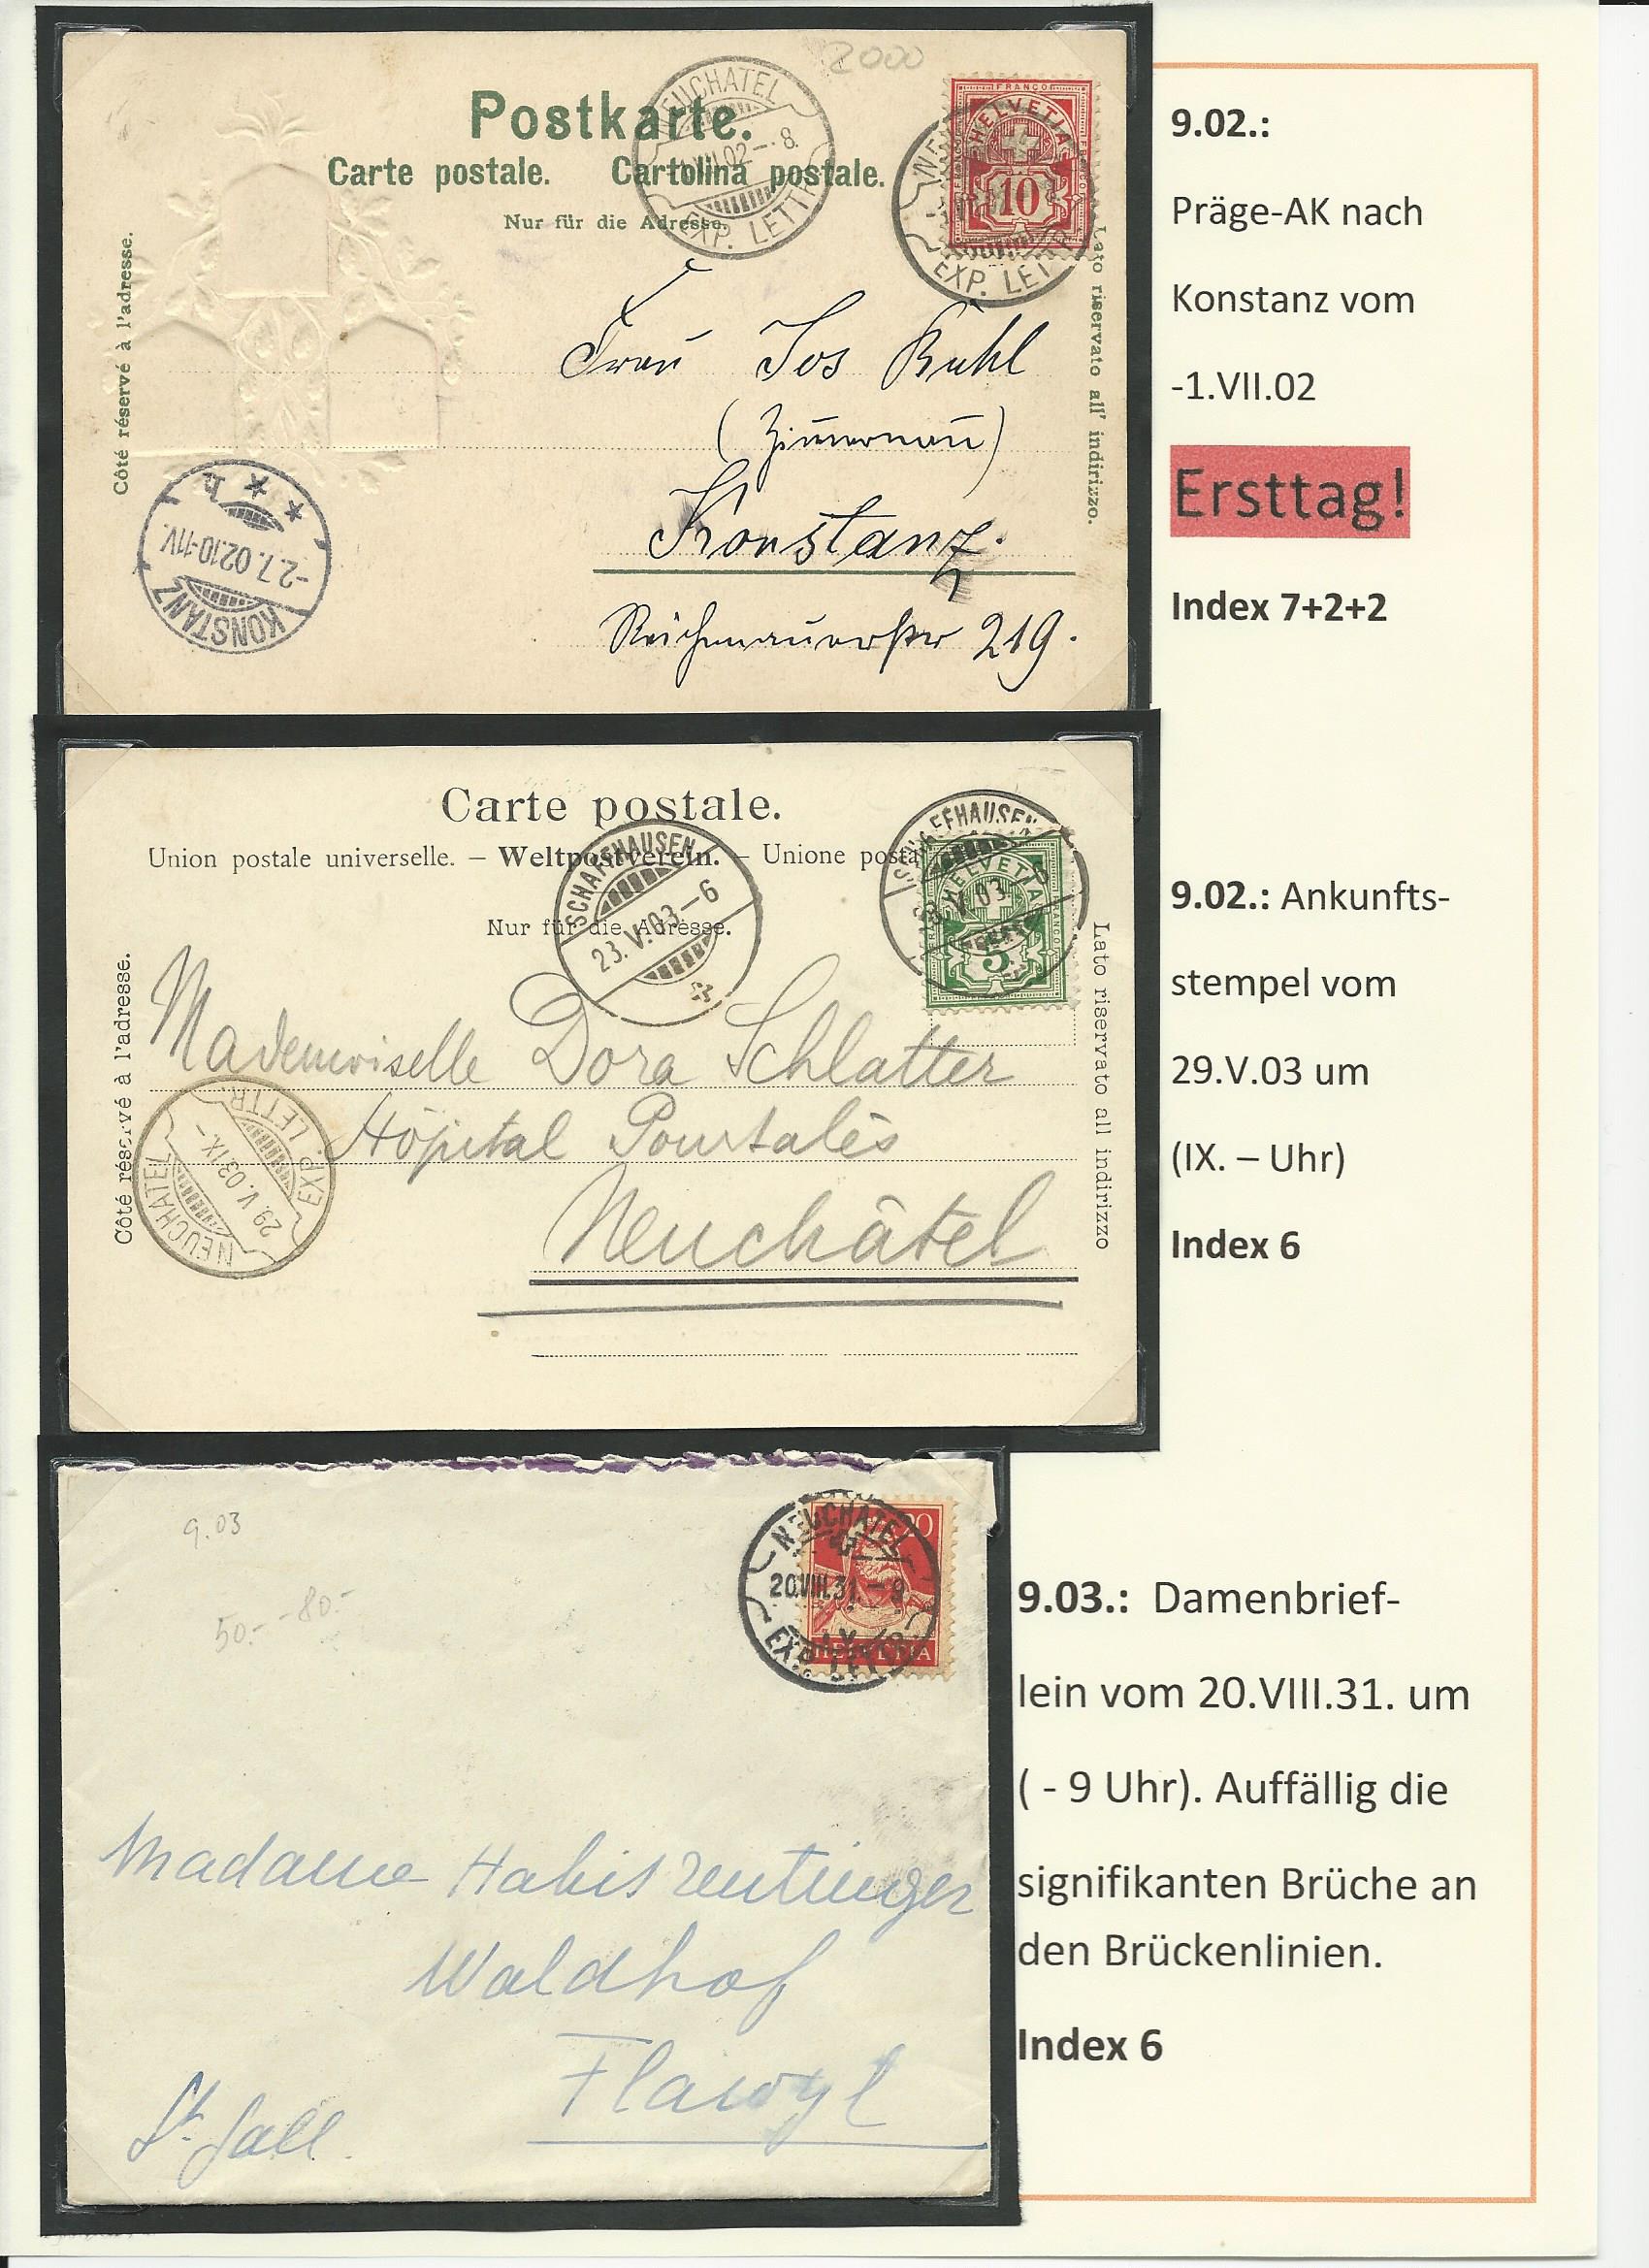 2000
Postkarte.
Carte postale. Cartolina postale.
Nur für die Adresse.
Côté réservé à l'adresse.
Lato riservato all' indirizzo.
NEUCHATEL
VII.02-8
EXP. LETTR
FRANCO
HELVETIA
10
EXP. LETTR
Frau Jos Ruhl
(Zimmermann)
Konstanz.
219.
KONSTANZ
-2.7.02.10-11V.
9.02.:
Präge-AK nach
Konstanz vom
-1.VII.02
Ersttag!
Index 7+2+2
Carte postale.
Union postale universelle. – Weltpostverein. – Unione posta
Nur für die Adresse.
Côté réservé à l'adresse.
Lato riservato all indirizzo
SCHAFFHAUSEN
23.V.03-6
SCHAFFHAUSEN
23.V.03-6
HELVETIA
FRANCO
5
Mademoiselle Dora Schlatter
Hôpital Pourtalès
Neuchâtel
NEUCHATEL
29.V.03.IX.-
EXP. LETTR
9.02.: Ankunfts-
stempel vom
29.V.03 um
(IX. – Uhr)
Index 6
9.03
50.- -80.-
NEUCHATEL
20.VIII.31.-9
EXP. LETTR
20
HELVETIA
Madame
Waldhof
Flawyl
St. Gall.
9.03.: Damenbrief-
lein vom 20.VIII.31. um
( - 9 Uhr). Auffällig die
signifikanten Brüche an
den Brückenlinien.
Index 6